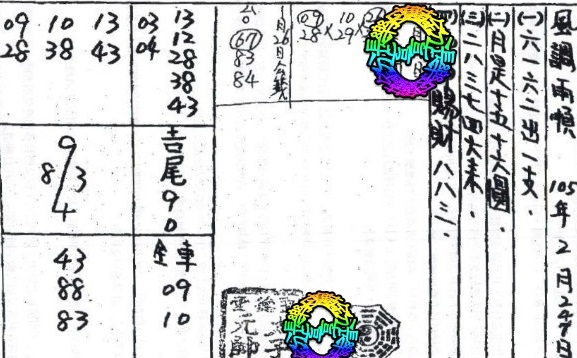 風調雨順 105年2月24日
(一)六一六二出一支.
(二)月是十五十六圓.
(三)二八三七四大来.
賜財八八三.
09 10
28×29×
月26日
67
83
84
03 13
04 12
28
38
43
09 10 13
28 38 43
吉尾90
9
8/3
4
全車
09
10
43
88
83
元帥